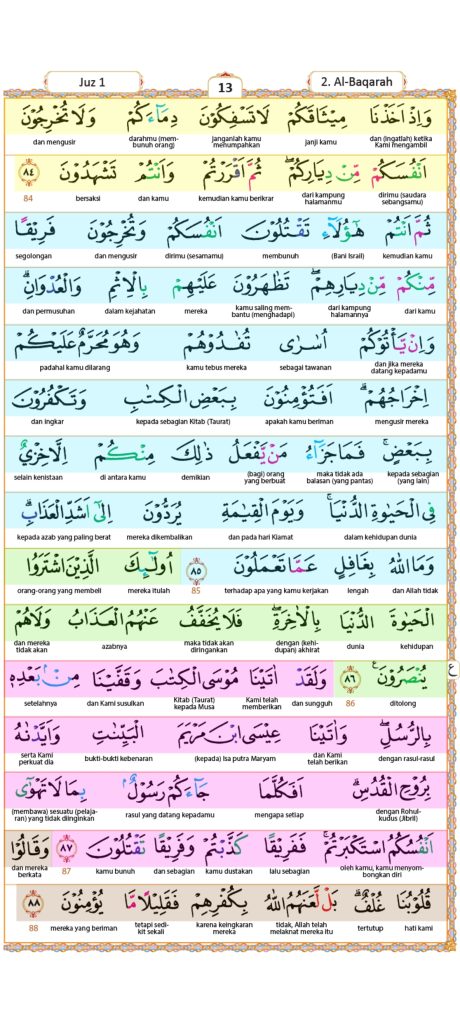 Juz 1 13 2. Al-Baqarah
وَاِذْ اَخَذْنَا مِيْثَاقَكُمْ لَا تَسْفِكُوْنَ دِمَاۤءَكُمْ وَلَا تُخْرِجُوْنَ
dan (ingatlah) ketika Kami mengambil janji kamu janganlah kamu menumpahkan darahmu (mem-bunuh orang) dan mengusir
اَنْفُسَكُمْ مِّنْ دِيَارِكُمْۖ ثُمَّ اَقْرَرْتُمْ وَاَنْتُمْ تَشْهَدُوْنَ ٨٤
dirimu (saudara sebangsamu) dari kampung halamanmu kemudian kamu berikrar dan kamu bersaksi 84
ثُمَّ اَنْتُمْ هٰٓؤُلَاۤءِ تَقْتُلُوْنَ اَنْفُسَكُمْ وَتُخْرِجُوْنَ فَرِيْقًا
kemudian kamu (Bani Israil) membunuh dirimu (sesamamu) dan mengusir segolongan
مِّنْكُمْ مِّنْ دِيَارِهِمْۖ تَظٰهَرُوْنَ عَلَيْهِمْ بِالْاِثْمِ وَالْعُدْوَانِۗ
dari kamu dari kampung halamannya kamu saling mem-bantu (menghadapi) mereka dalam kejahatan dan permusuhan
وَاِنْ يَّأْتُوْكُمْ اُسٰرٰى تُفٰدُوْهُمْ وَهُوَ مُحَرَّمٌ عَلَيْكُمْ
dan jika mereka datang kepadamu sebagai tawanan kamu tebus mereka padahal kamu dilarang
اِخْرَاجُهُمْۗ اَفَتُؤْمِنُوْنَ بِبَعْضِ الْكِتٰبِ وَتَكْفُرُوْنَ
mengusir mereka apakah kamu beriman kepada sebagian Kitab (Taurat) dan ingkar
بِبَعْضٍۚ فَمَا جَزَاۤءُ مَنْ يَّفْعَلُ ذٰلِكَ مِنْكُمْ اِلَّا خِزْيٌ
kepada sebagian (yang lain) maka tidak ada balasan (yang pantas) (bagi) orang yang berbuat demikian di antara kamu selain kenistaan
فِى الْحَيٰوةِ الدُّنْيَاۚ وَيَوْمَ الْقِيٰمَةِ يُرَدُّوْنَ اِلٰٓى اَشَدِّ الْعَذَابِۗ
dalam kehidupan dunia dan pada hari Kiamat mereka dikembalikan kepada azab yang paling berat
وَمَا اللّٰهُ بِغَافِلٍ عَمَّا تَعْمَلُوْنَ ٨٥ اُولٰۤىِٕكَ الَّذِيْنَ اشْتَرَوُا
dan Allah tidak lengah terhadap apa yang kamu kerjakan 85 mereka itulah orang-orang yang membeli
الْحَيٰوةَ الدُّنْيَا بِالْاٰخِرَةِۖ فَلَا يُخَفَّفُ عَنْهُمُ الْعَذَابُ وَلَا هُمْ
kehidupan dunia dengan (kehi-dupan) akhirat maka tidak akan diringankan azabnya dan mereka tidak akan
يُنْصَرُوْنَ ٨٦ وَلَقَدْ اٰتَيْنَا مُوْسَى الْكِتٰبَ وَقَفَّيْنَا مِنْۢ بَعْدِهٖ ع
ditolong 86 dan sungguh Kami telah memberikan Kitab (Taurat) kepada Musa dan Kami susulkan setelahnya
بِالرُّسُلِۖ وَاٰتَيْنَا عِيْسَى ابْنَ مَرْيَمَ الْبَيِّنٰتِ وَاَيَّدْنٰهُ
dengan rasul-rasul dan Kami telah berikan (kepada) Isa putra Maryam bukti-bukti kebenaran serta Kami perkuat dia
بِرُوْحِ الْقُدُسِۗ اَفَكُلَّمَا جَاۤءَكُمْ رَسُوْلٌۢ بِمَا لَا تَهْوٰٓى
dengan Rohul-kudus (Jibril) mengapa setiap rasul yang datang kepadamu (membawa) sesuatu (pelaja-ran) yang tidak diinginkan
اَنْفُسُكُمُ اسْتَكْبَرْتُمْۚ فَفَرِيْقًا كَذَّبْتُمْ وَفَرِيْقًا تَقْتُلُوْنَ ٨٧ وَقَالُوْا
oleh kamu, kamu menyom-bongkan diri lalu sebagian kamu dustakan dan sebagian kamu bunuh 87 dan mereka berkata
قُلُوْبُنَا غُلْفٌۗ بَلْ لَّعَنَهُمُ اللّٰهُ بِكُفْرِهِمْ فَقَلِيْلًا مَّا يُؤْمِنُوْنَ ٨٨
hati kami tertutup tidak, Allah telah melaknat mereka itu karena keingkaran mereka tetapi sedi-kit sekali mereka yang beriman 88